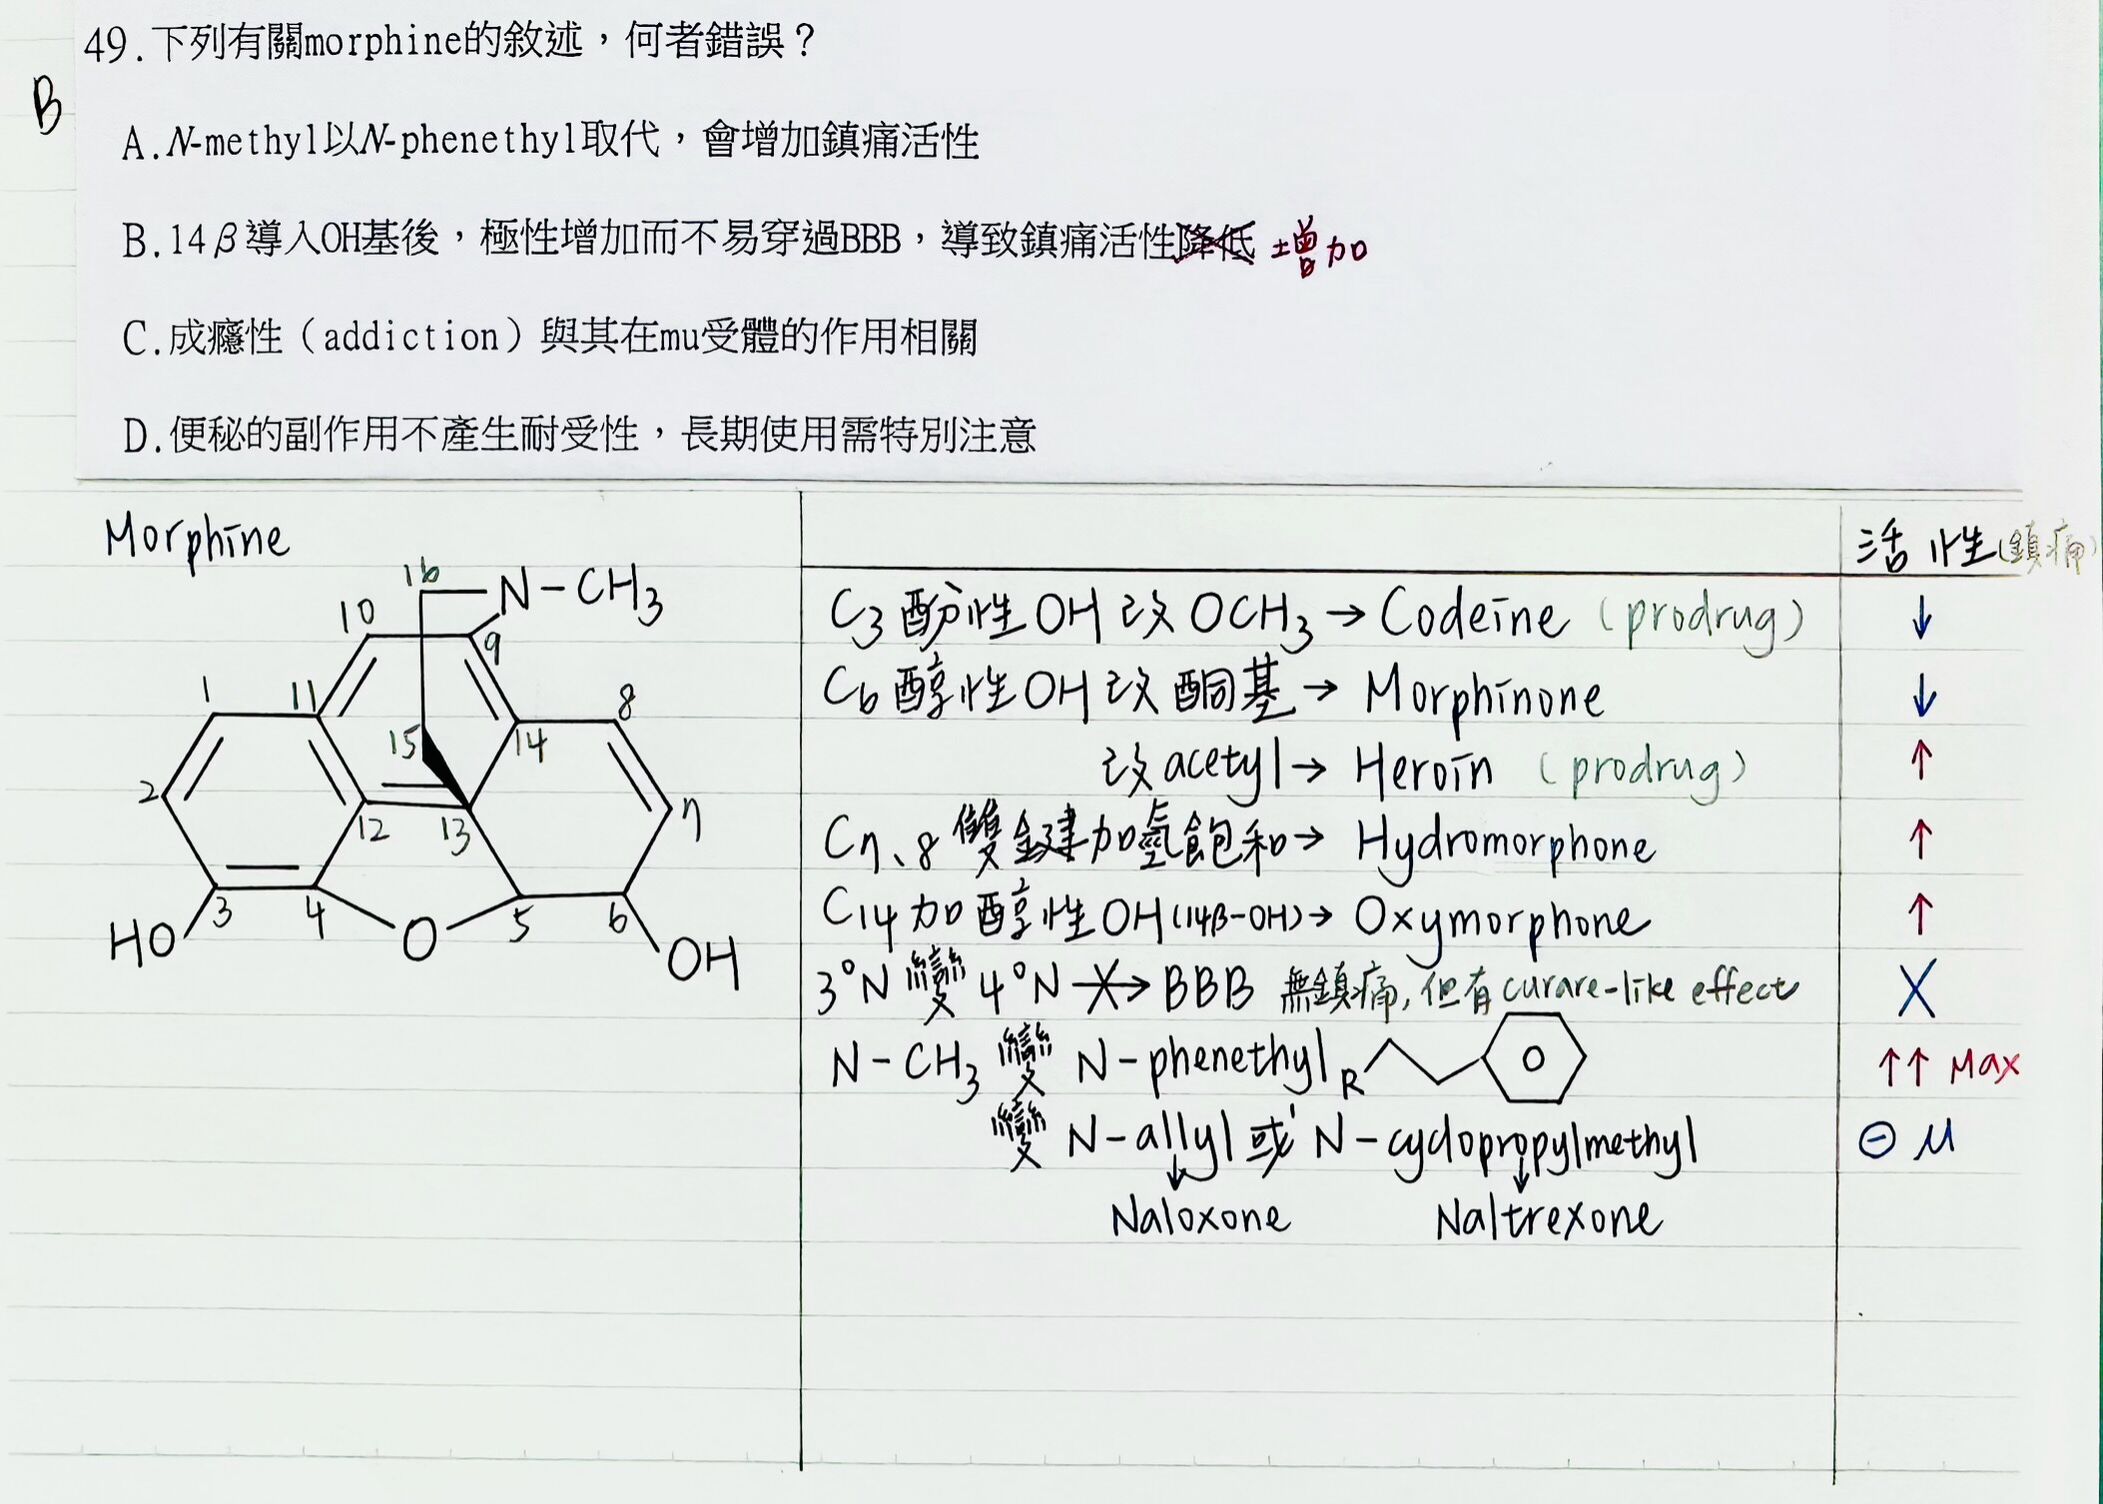 49.下列有關morphine的敘述，何者錯誤？
B
A.N-methyl以N-phenethyl取代，會增加鎮痛活性
B.14β導入OH基後，極性增加而不易穿過BBB，導致鎮痛活性降低 增加
C.成癮性（addiction）與其在mu受體的作用相關
D.便秘的副作用不產生耐受性，長期使用需特別注意
Morphine
活性(鎮痛)
16 N-CH3
10 9
1 11 15 14 8
2 12 13 7
3 4 5 6
HO O OH
C3 酚性OH 改 OCH3 → Codeine (prodrug) ↓
C6 醇性OH 改 酮基 → Morphinone ↓
改 acetyl → Heroin (prodrug) ↑
C7、8 雙鍵加氫飽和 → Hydromorphone ↑
C14 加醇性OH(14β-OH) → Oxymorphone ↑
3°N 變 4°N → BBB 無鎮痛, 但有 curare-like effect X
N-CH3 變 N-phenethyl R ↑↑ Max
變 N-allyl 或 N-cyclopropylmethyl ⊖ μ
↓ ↓
Naloxone Naltrexone